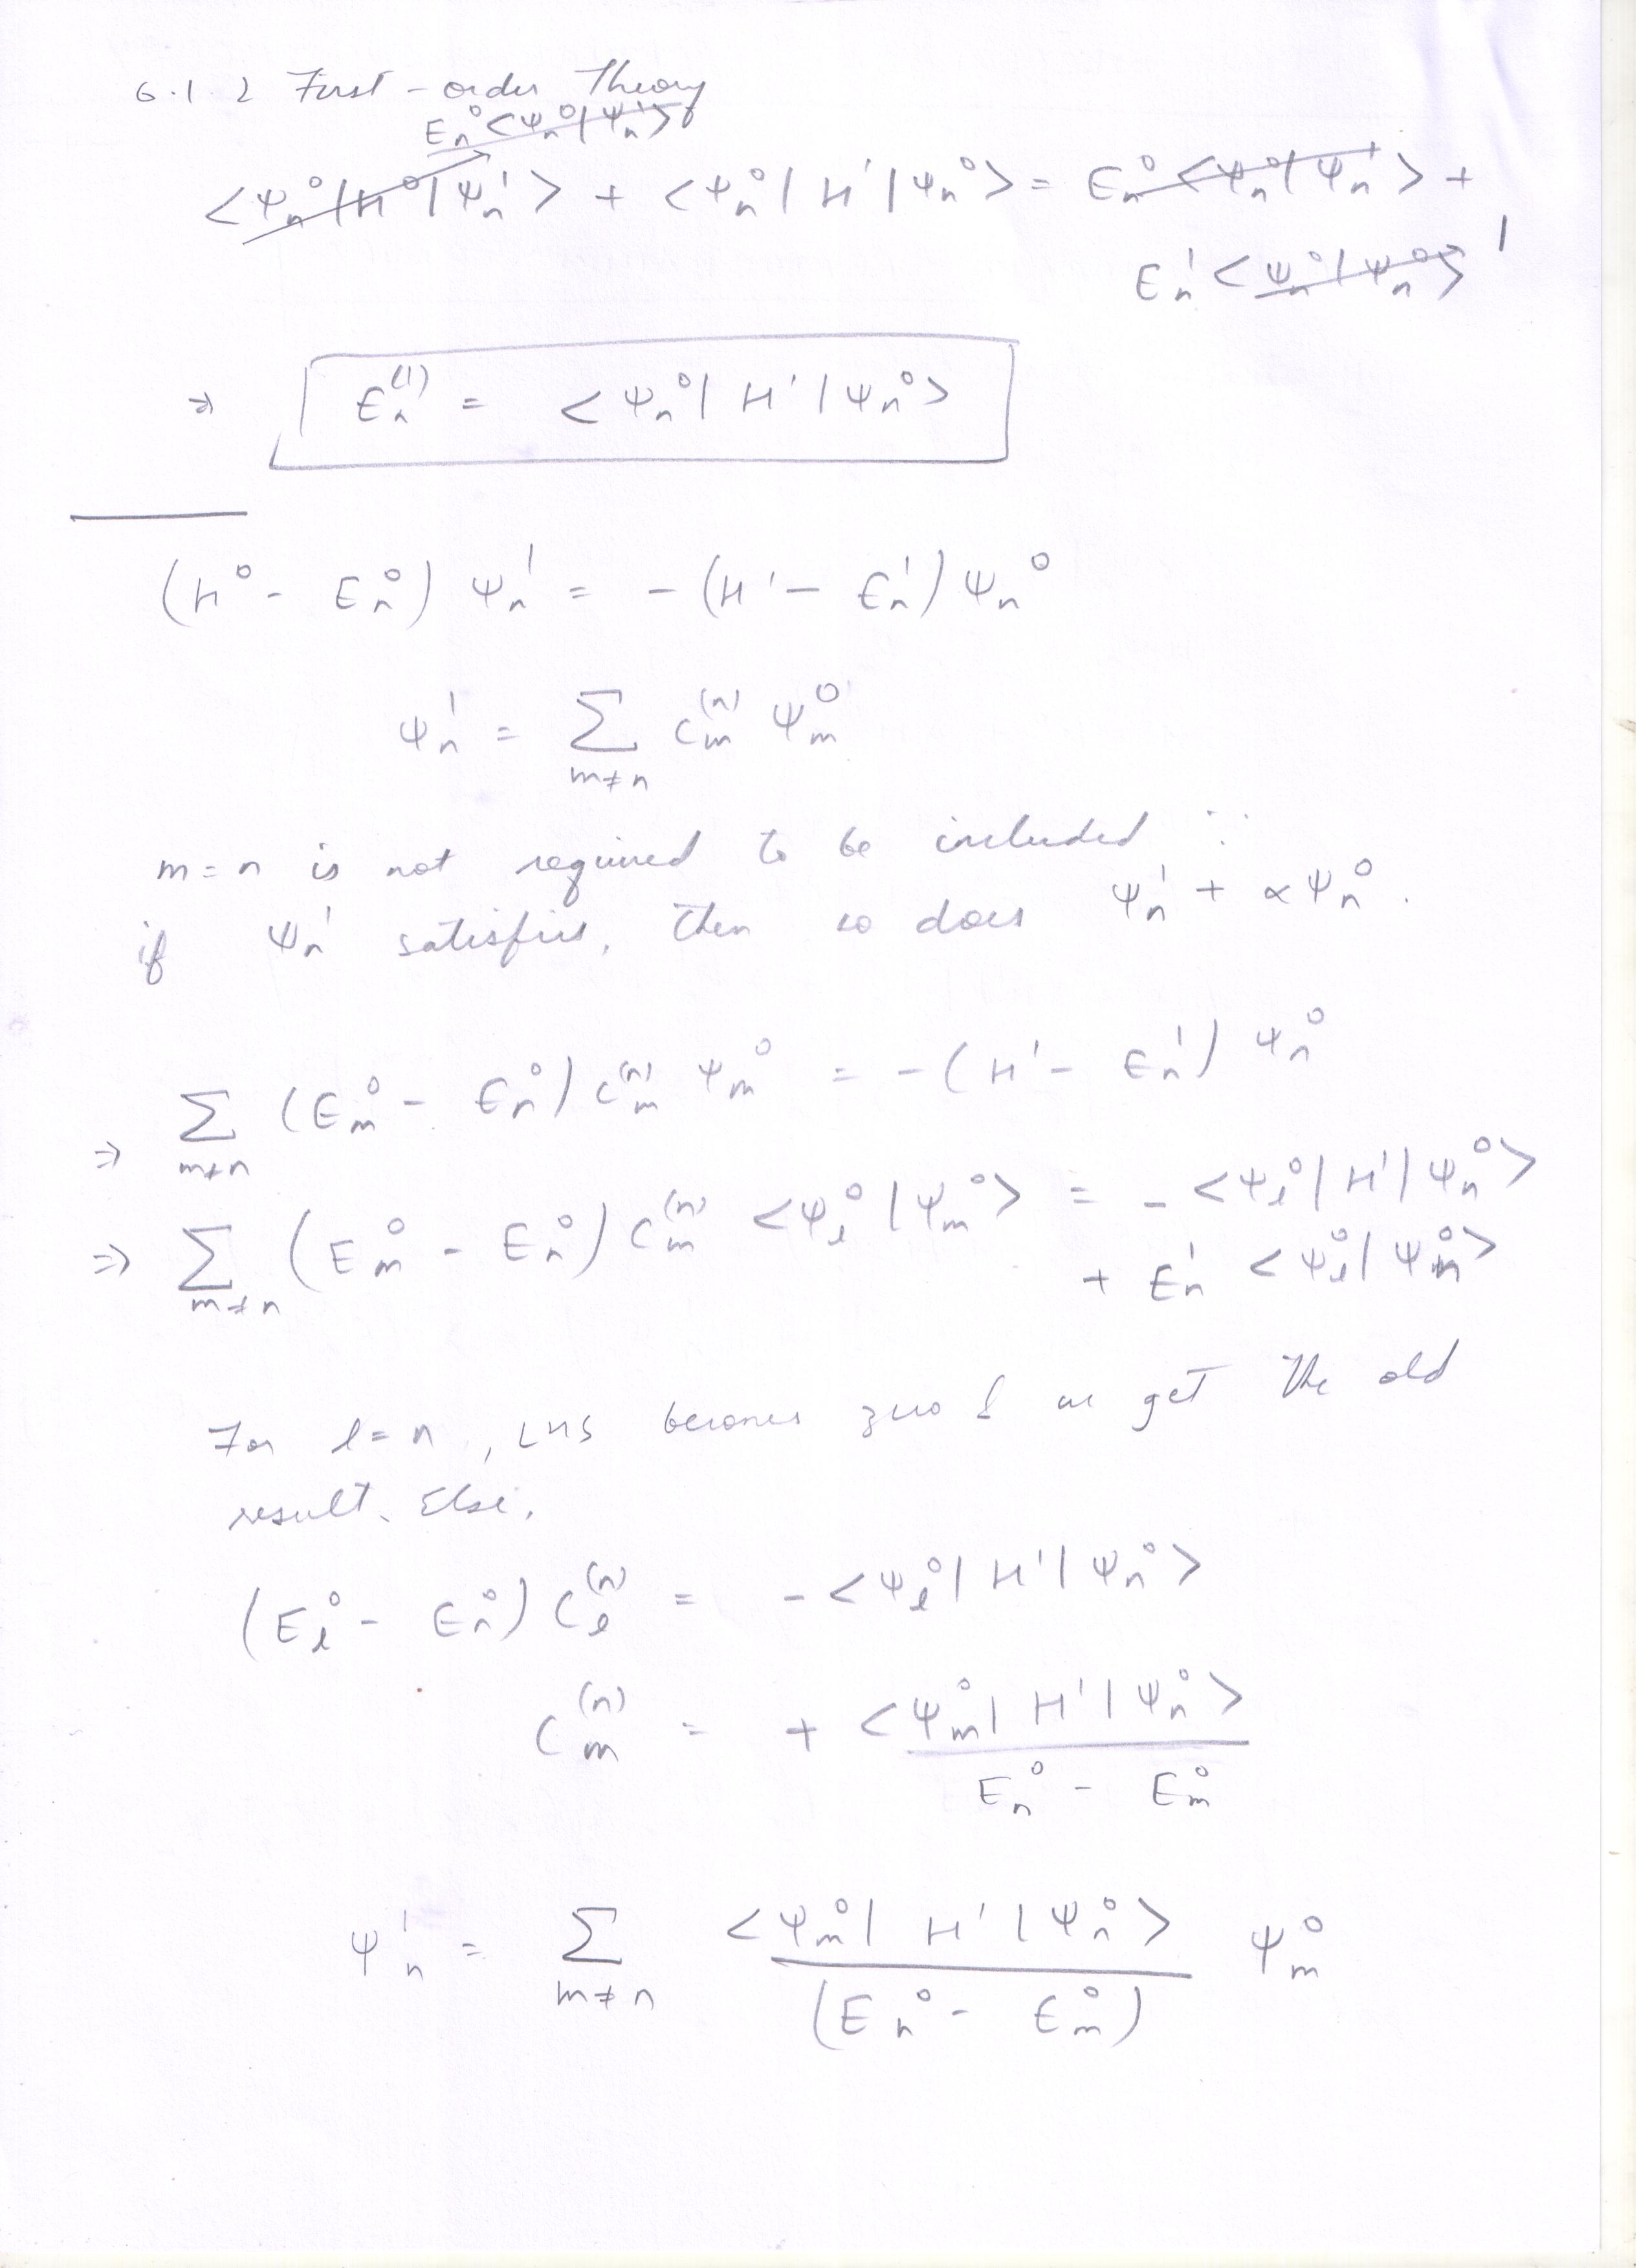 6.1.2 First-order Theory
E_n^0 <ψ_n^0|ψ_n^1>
<ψ_n^0|H^0|ψ_n^1> + <ψ_n^0|H'|ψ_n^0> = E_n^0 <ψ_n^0|ψ_n^1> +
E_n^1 <ψ_n^0|ψ_n^0> 1
⇒ E_n^(1) = <ψ_n^0|H'|ψ_n^0>
(H^0 - E_n^0) ψ_n^1 = -(H' - E_n^1) ψ_n^0
ψ_n^1 = Σ_{m≠n} c_m^(n) ψ_m^0
m=n is not required to be included ∵
if ψ_n^1 satisfies, then so does ψ_n^1 + αψ_n^0.
⇒ Σ_{m≠n} (E_m^0 - E_n^0) c_m^(n) ψ_m^0 = -(H' - E_n^1) ψ_n^0
⇒ Σ_{m≠n} (E_m^0 - E_n^0) c_m^(n) <ψ_l^0|ψ_m^0> = -<ψ_l^0|H'|ψ_n^0>
+ E_n^1 <ψ_l^0|ψ_n^0>
For l=n, LHS becomes zero & we get the old
result. Else,
(E_l^0 - E_n^0) c_l^(n) = -<ψ_l^0|H'|ψ_n^0>
c_m^(n) = + <ψ_m^0|H'|ψ_n^0> / E_n^0 - E_m^0
ψ_n^1 = Σ_{m≠n} <ψ_m^0|H'|ψ_n^0> / (E_n^0 - E_m^0) ψ_m^0